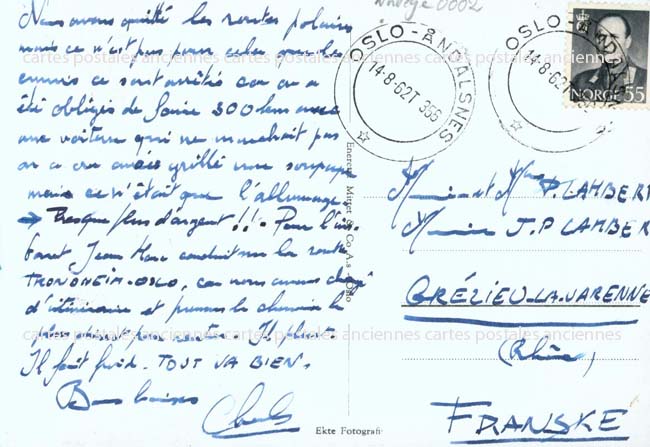 Norvège 0002
Nous avons quitté les routes polaires
mais ce n'est pas pour cela que les
ennuis se sont arrêtés car on a
été obligés de faire 300 km avec
une voiture qui ne marchait pas
on a cru avoir grillé une soupape
mais ce n'était que l'allumage
→ Presque plus d'argent !! - Pour l'ins-
tant Jean Marc conduit sur la route
TRONDHEIM-OSLO, car nous avons changé
d'itinéraire et prenons le chemin le
plus
Il fait froid. TOUT VA BIEN.
Bons baisers
Charles
OSLO-ÅNDALSNES
14-8-62 T 366
OSLO-ÅNDALSNES
14-8-62 T 366
NORGE 55
Enerett Mittet & Co. A.s Oslo
Monsieur et Mme P. LAMBERT
J.P LAMBERT
GRÉZIEU-LA-VARENNE
(Rhône)
FRANSKE
Ekte Fotografi
cartes postales anciennes cartes postales anciennes cartes postales anciennes
cartes postales anciennes cartes postales anciennes cartes postales anciennes